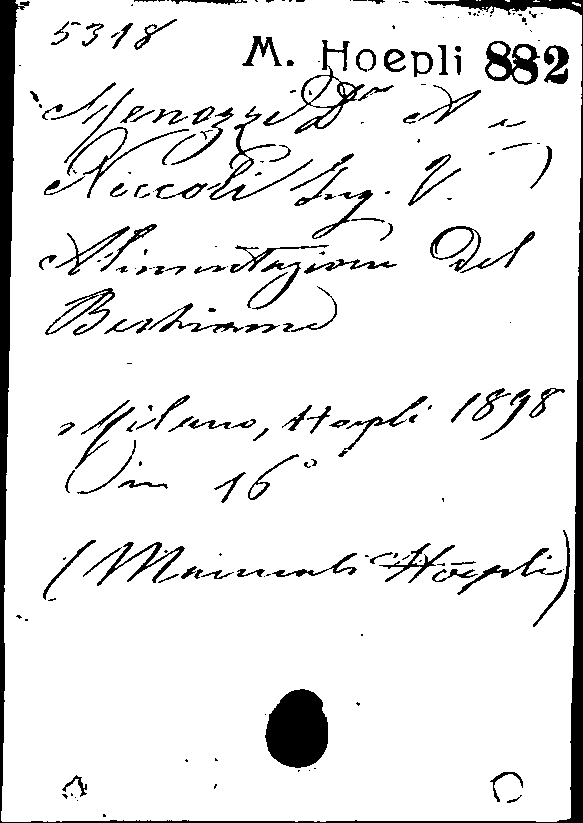 5318
M. Hoepli 882
Menozzi Dr. A. e
Niccoli Ing. V.
Alimentazione del
Bestiame
Milano, Hoepli 1898
in 16°
(Manuali Hoepli)